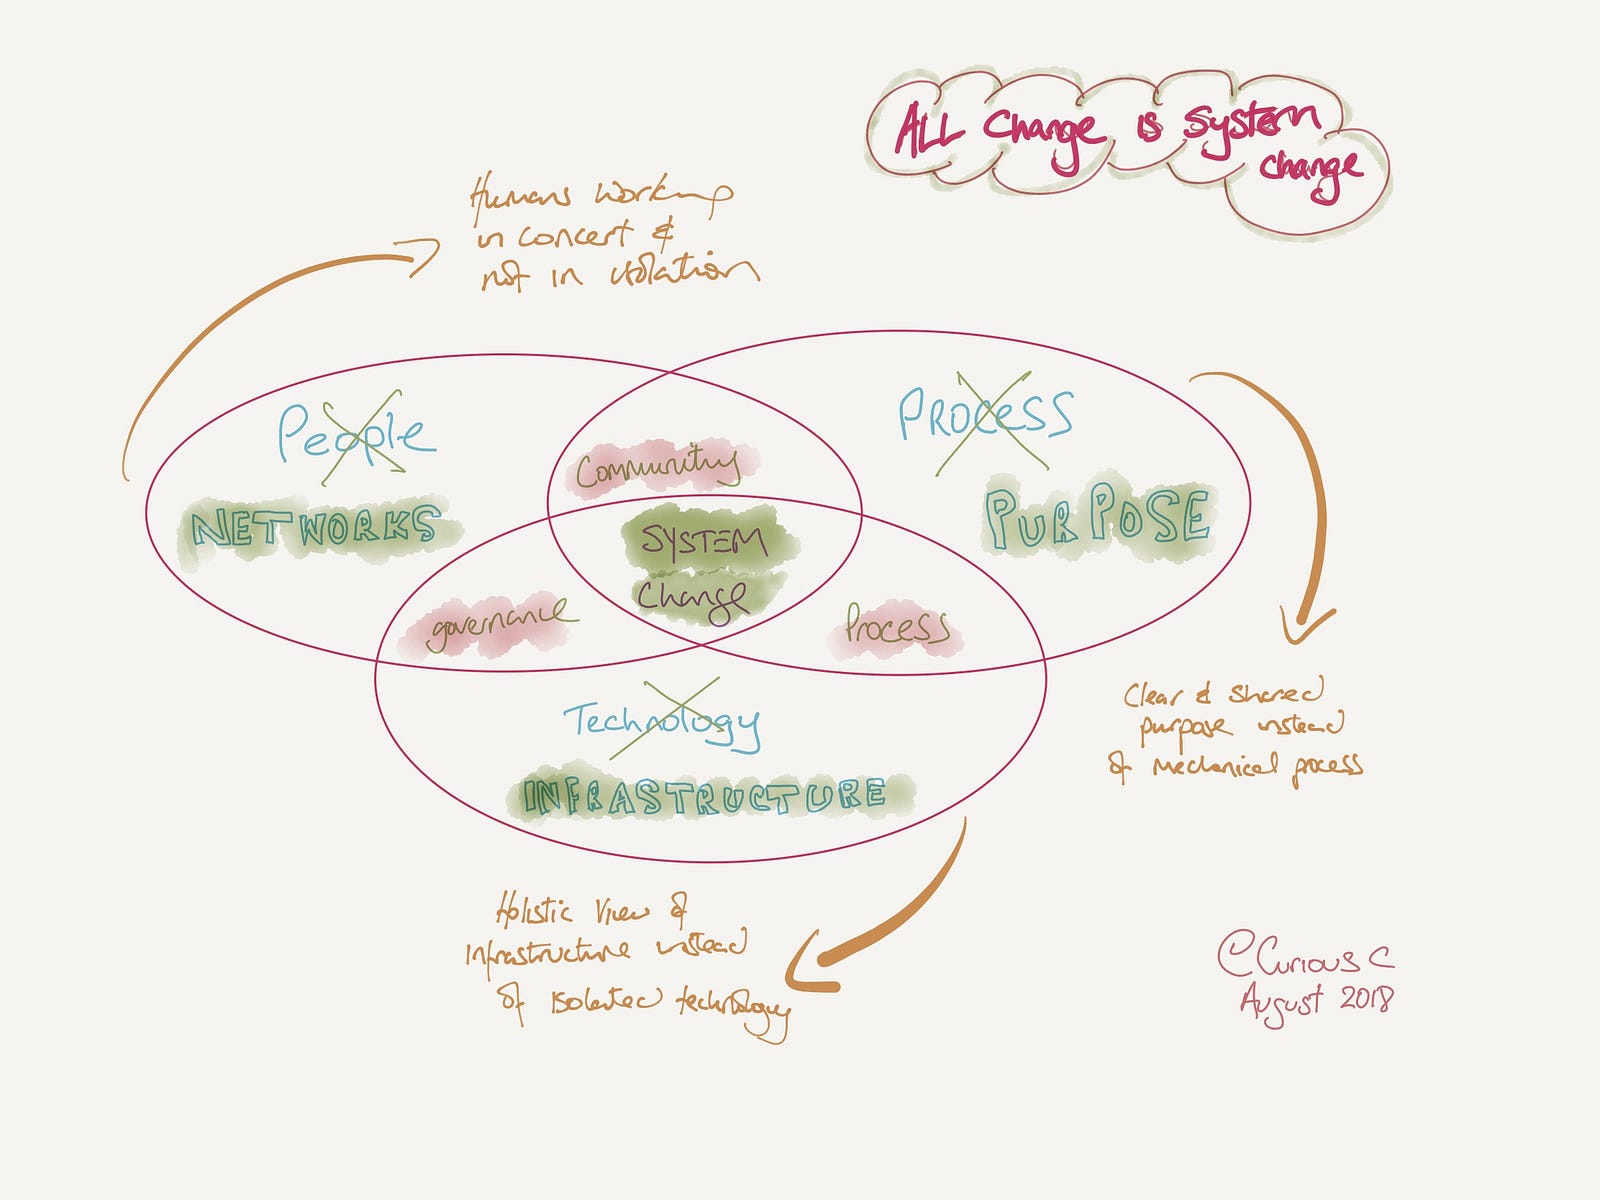 ALL Change is System
change
Humans working
in concert &
not in isolation
People
NETWORKS
Process
PURPOSE
Community
SYSTEM
Change
governance
Process
Technology
INFRASTRUCTURE
Clear & shared
purpose instead
of mechanical process
Holistic View of
infrastructure instead
of isolated technology
@Curious C
August 2018